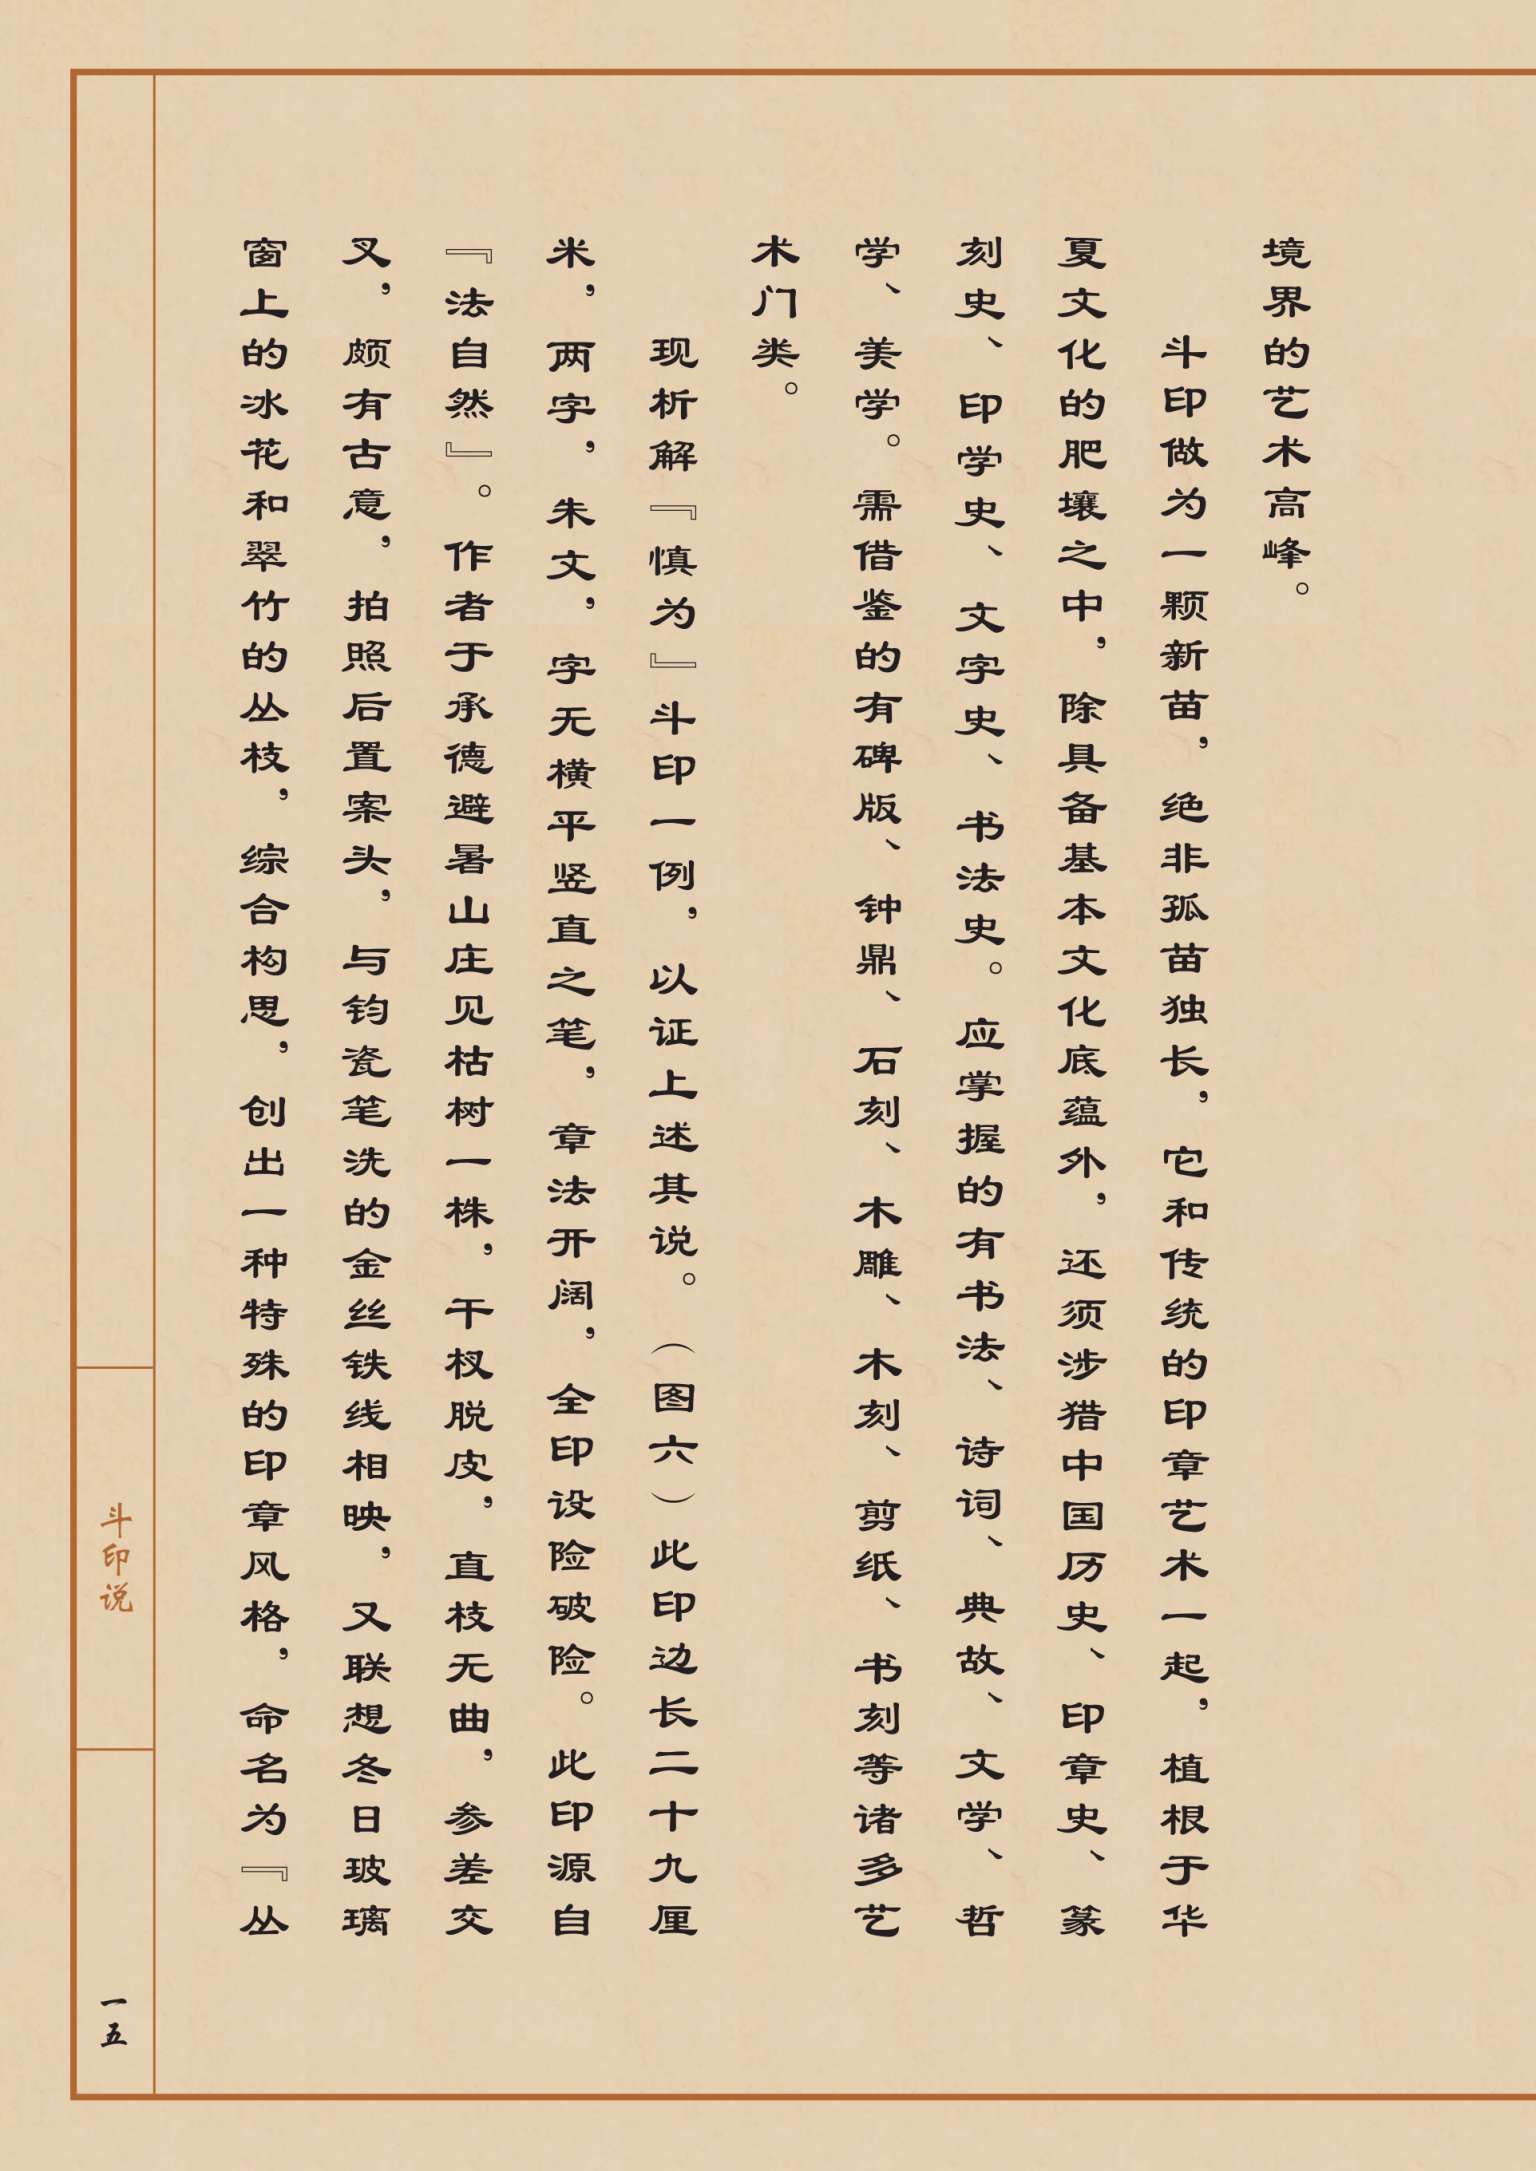 境界的艺术高峰。
斗印做为一颗新苗，绝非孤苗独长，它和传统的印章艺术一起，植根于华
夏文化的肥壤之中，除具备基本文化底蕴外，还须涉猎中国历史、印章史、篆
刻史、印学史、文字史、书法史。应掌握的有书法、诗词、典故、文学、哲
学、美学。需借鉴的有碑版、钟鼎、石刻、木雕、木刻、剪纸、书刻等诸多艺
术门类。
现析解『慎为』斗印一例，以证上述其说。（图六）此印边长二十九厘
米，两字，朱文，字无横平竖直之笔，章法开阔，全印设险破险。此印源自
『法自然』。作者于承德避暑山庄见枯树一株，干杈脱皮，直枝无曲，参差交
叉，颇有古意，拍照后置案头，与钧瓷笔洗的金丝铁线相映，又联想冬日玻璃
窗上的冰花和翠竹的丛枝，综合构思，创出一种特殊的印章风格，命名为『丛
斗印说
一五